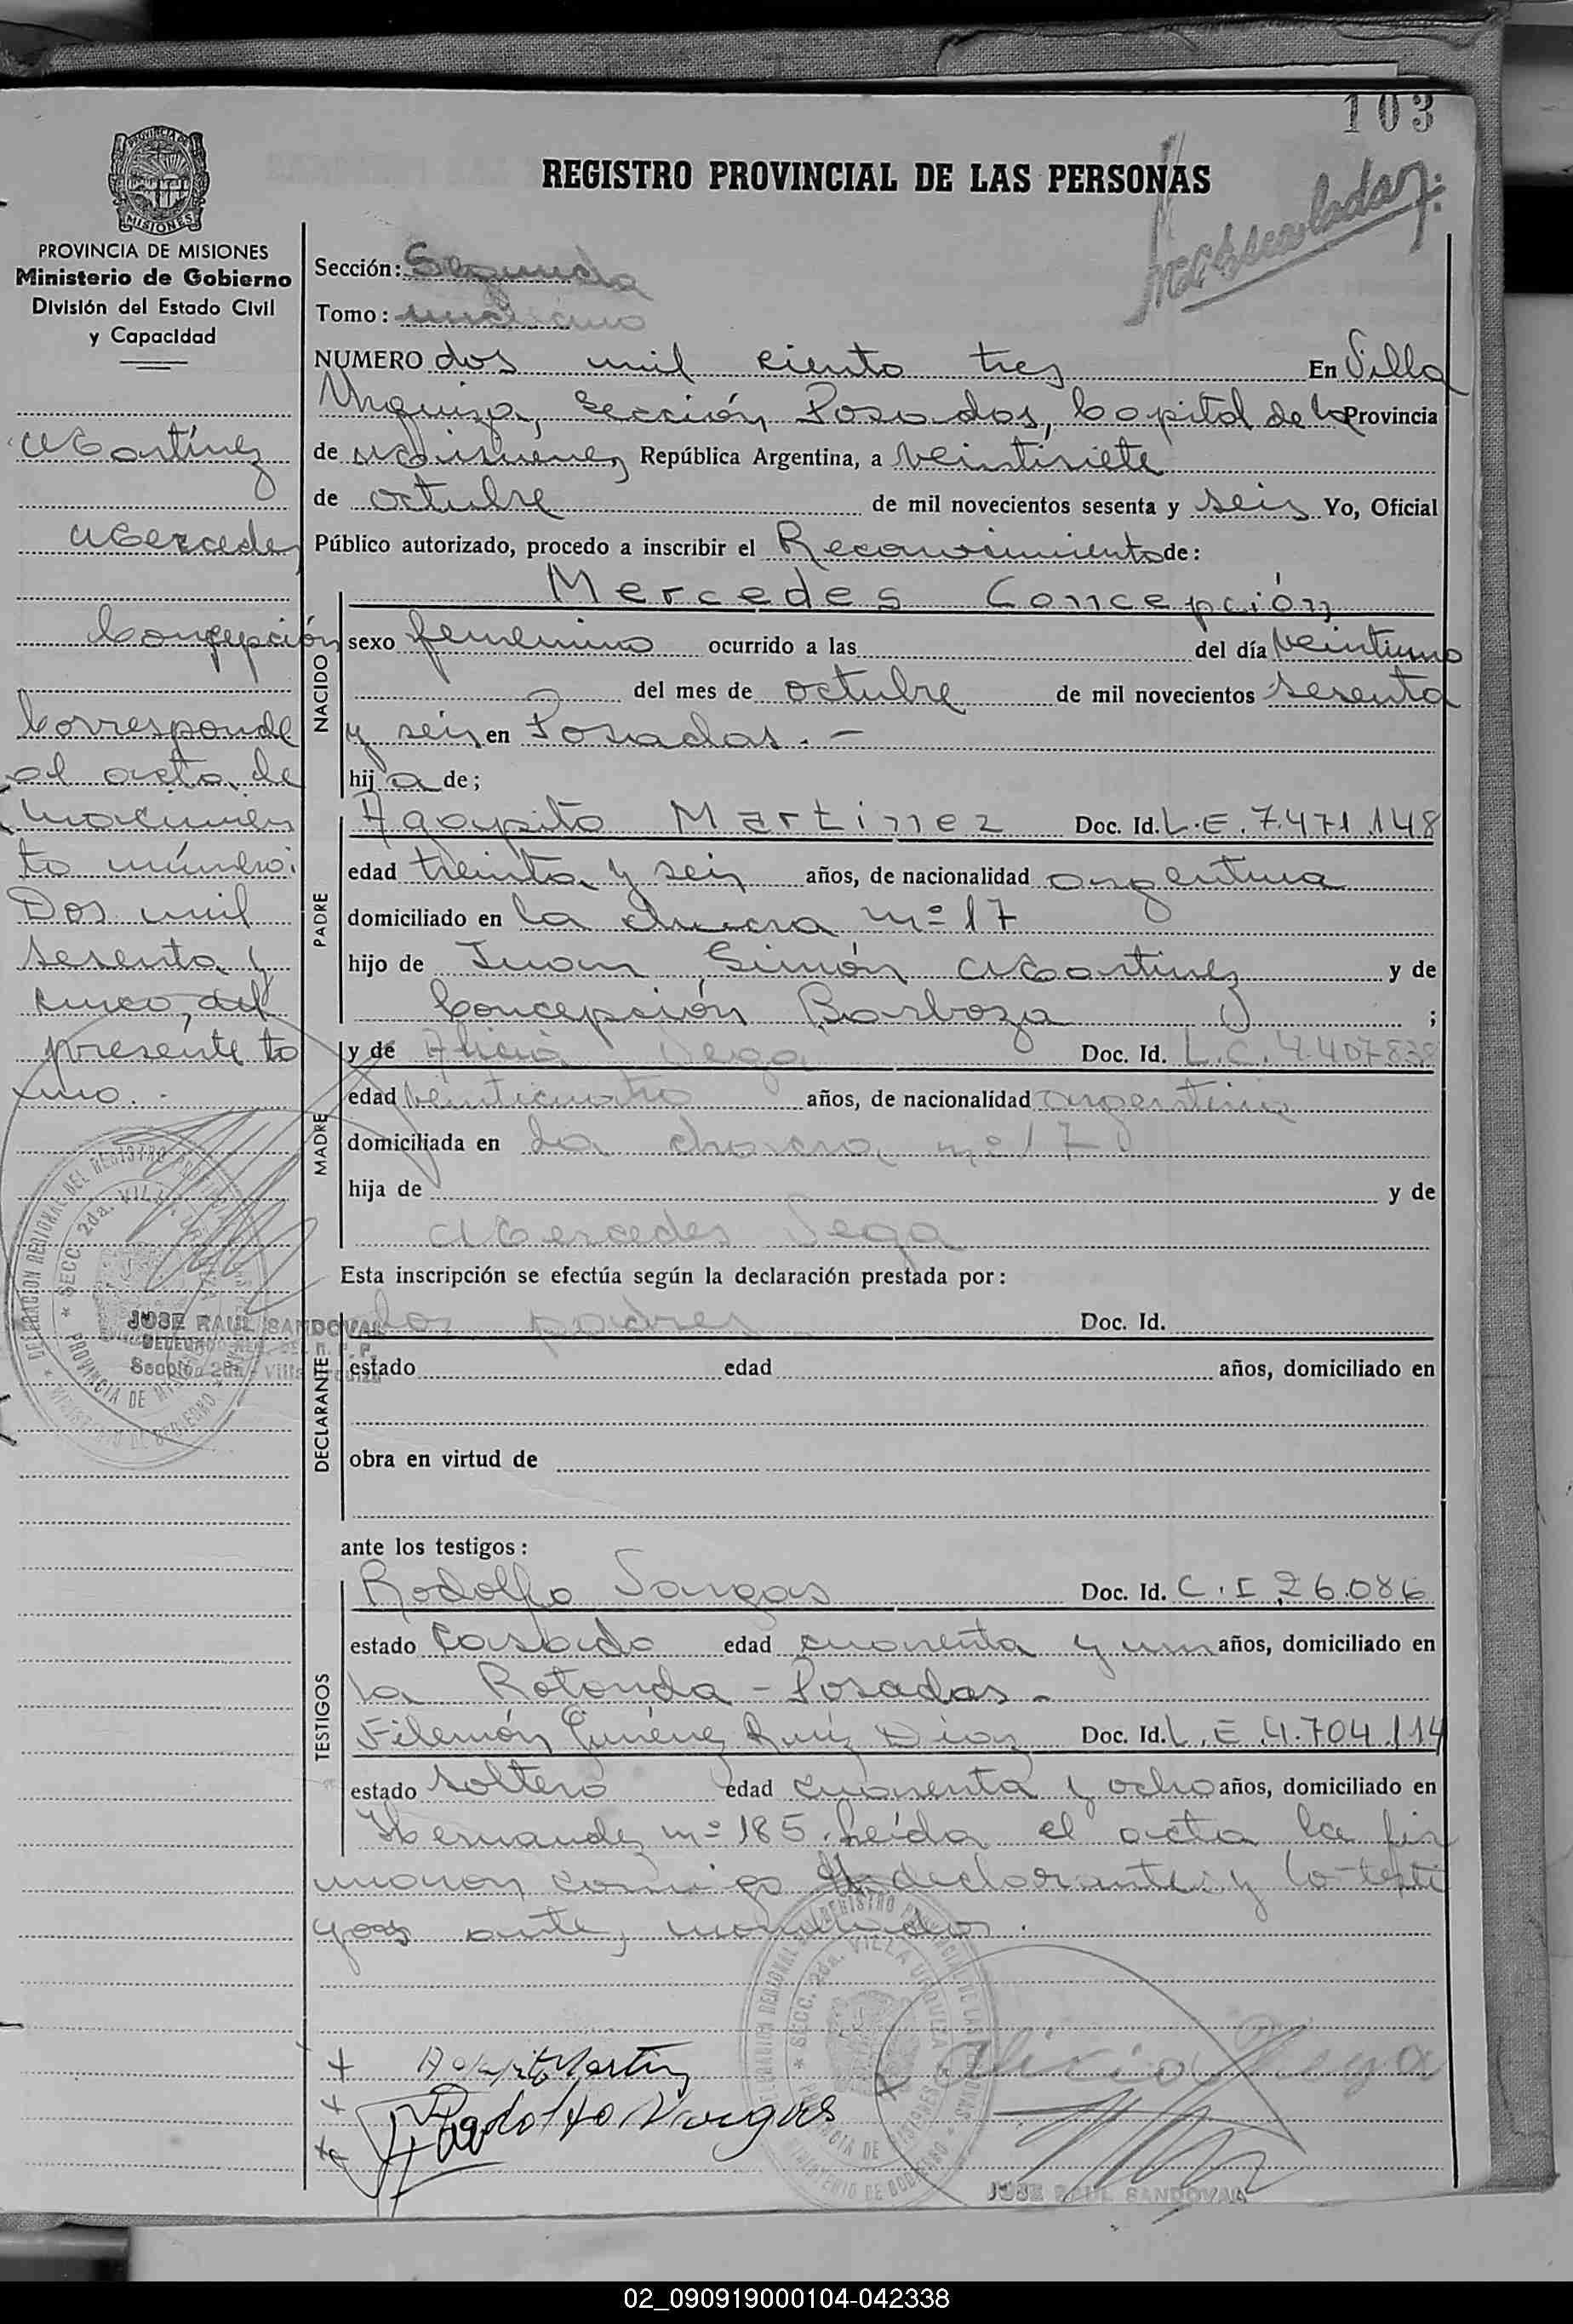 103
REGISTRO PROVINCIAL DE LAS PERSONAS
PROVINCIA DE MISIONES
Ministerio de Gobierno
División del Estado Civil
y Capacidad
Martínez
Mercedes
Concepción
Corresponde
al acta de
nacimien
to número:
Dos mil
sesenta y
cinco, del
presente to
mo.-
JOSE RAUL SANDOVAL
Sección: Segunda
Tomo: undécimo
NUMERO dos mil ciento tres En Villa
Urquiza, Sección Posadas, Capital de la Provincia
de Misiones, República Argentina, a veintisiete
de octubre de mil novecientos sesenta y seis Yo, Oficial
Público autorizado, procedo a inscribir el Reconocimiento de:
NACIDO
Mercedes Concepción
sexo femenino ocurrido a las del día veintiuno
del mes de octubre de mil novecientos sesenta
y seis en Posadas.-
hija de;
PADRE
Agapito Martinez Doc. Id. L.E. 7.471.148
edad treinta y seis años, de nacionalidad argentina
domiciliado en la chacra nº 17
hijo de Juan Simón Martinez y de
Concepción Barboza ;
MADRE
y de Alicia Vega Doc. Id. L.C. 4.407.838
edad veinticuatro años, de nacionalidad argentina
domiciliada en la chacra nº 17
hija de y de
Mercedes Vega
Esta inscripción se efectúa según la declaración prestada por:
DECLARANTE
los padres Doc. Id.
estado edad años, domiciliado en
obra en virtud de
ante los testigos:
TESTIGOS
Rodolfo Vargas Doc. Id. C.I. 26.086
estado casado edad cuarenta y un años, domiciliado en
la Rotonda - Posadas.-
Filemón Giménez Ruíz Diaz Doc. Id. L.E. 4.704.114
estado soltero edad cuarenta y ocho años, domiciliado en
Hernandez nº 185. Leída el acta la fir
maron conmigo declarantes y los testi
gos ante, nombrados.
Agapito Martinez
Rodolfo Vargas
Alicia Vega
JOSE RAUL SANDOVAL
02_090919000104-042338